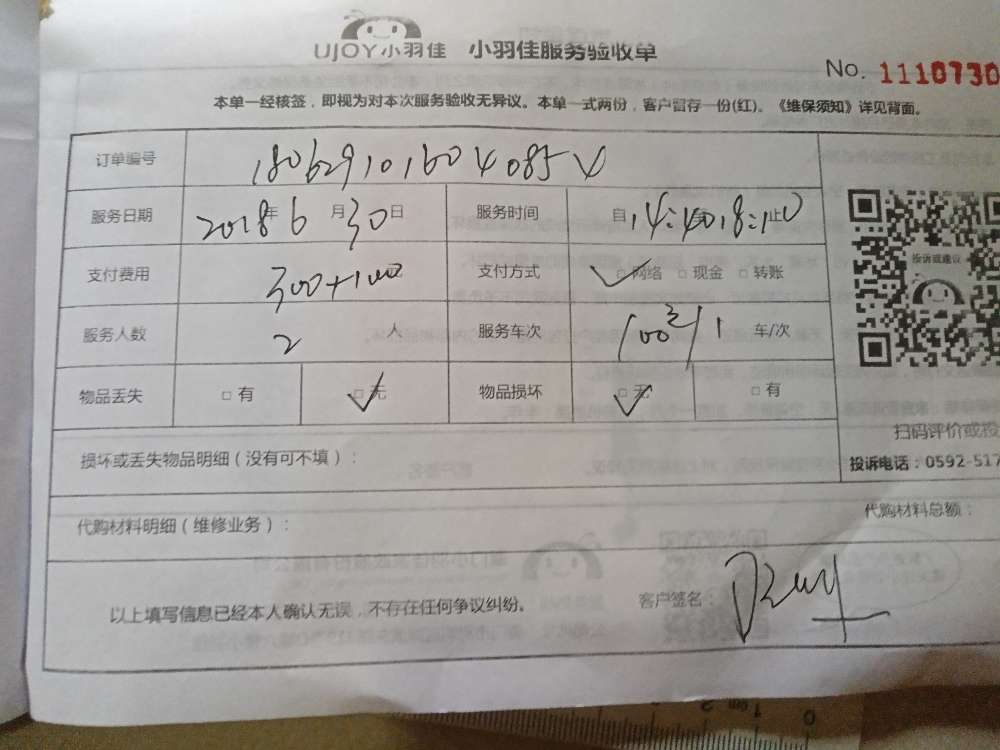 UJOY小羽佳 小羽佳服务验收单
No. 1110730
本单一经核签，即视为对本次服务验收无异议。本单一式两份，客户留存一份(红)。《维保须知》详见背面。
订单编号 180629101604085V
服务日期 2018年6月30日 服务时间 自14:40 18:10止
投诉或建议
支付费用 300+100元 支付方式 □网络 □现金 □转账
服务人数 2人 服务车次 1 车/次
物品丢失 □有 □无 物品损坏 □无 □有
扫码评价或投
损坏或丢失物品明细（没有可不填）：
投诉电话：0592-517
代购材料明细（维修业务）： 代购材料总额：
以上填写信息已经本人确认无误，不存在任何争议纠纷。 客户签名：